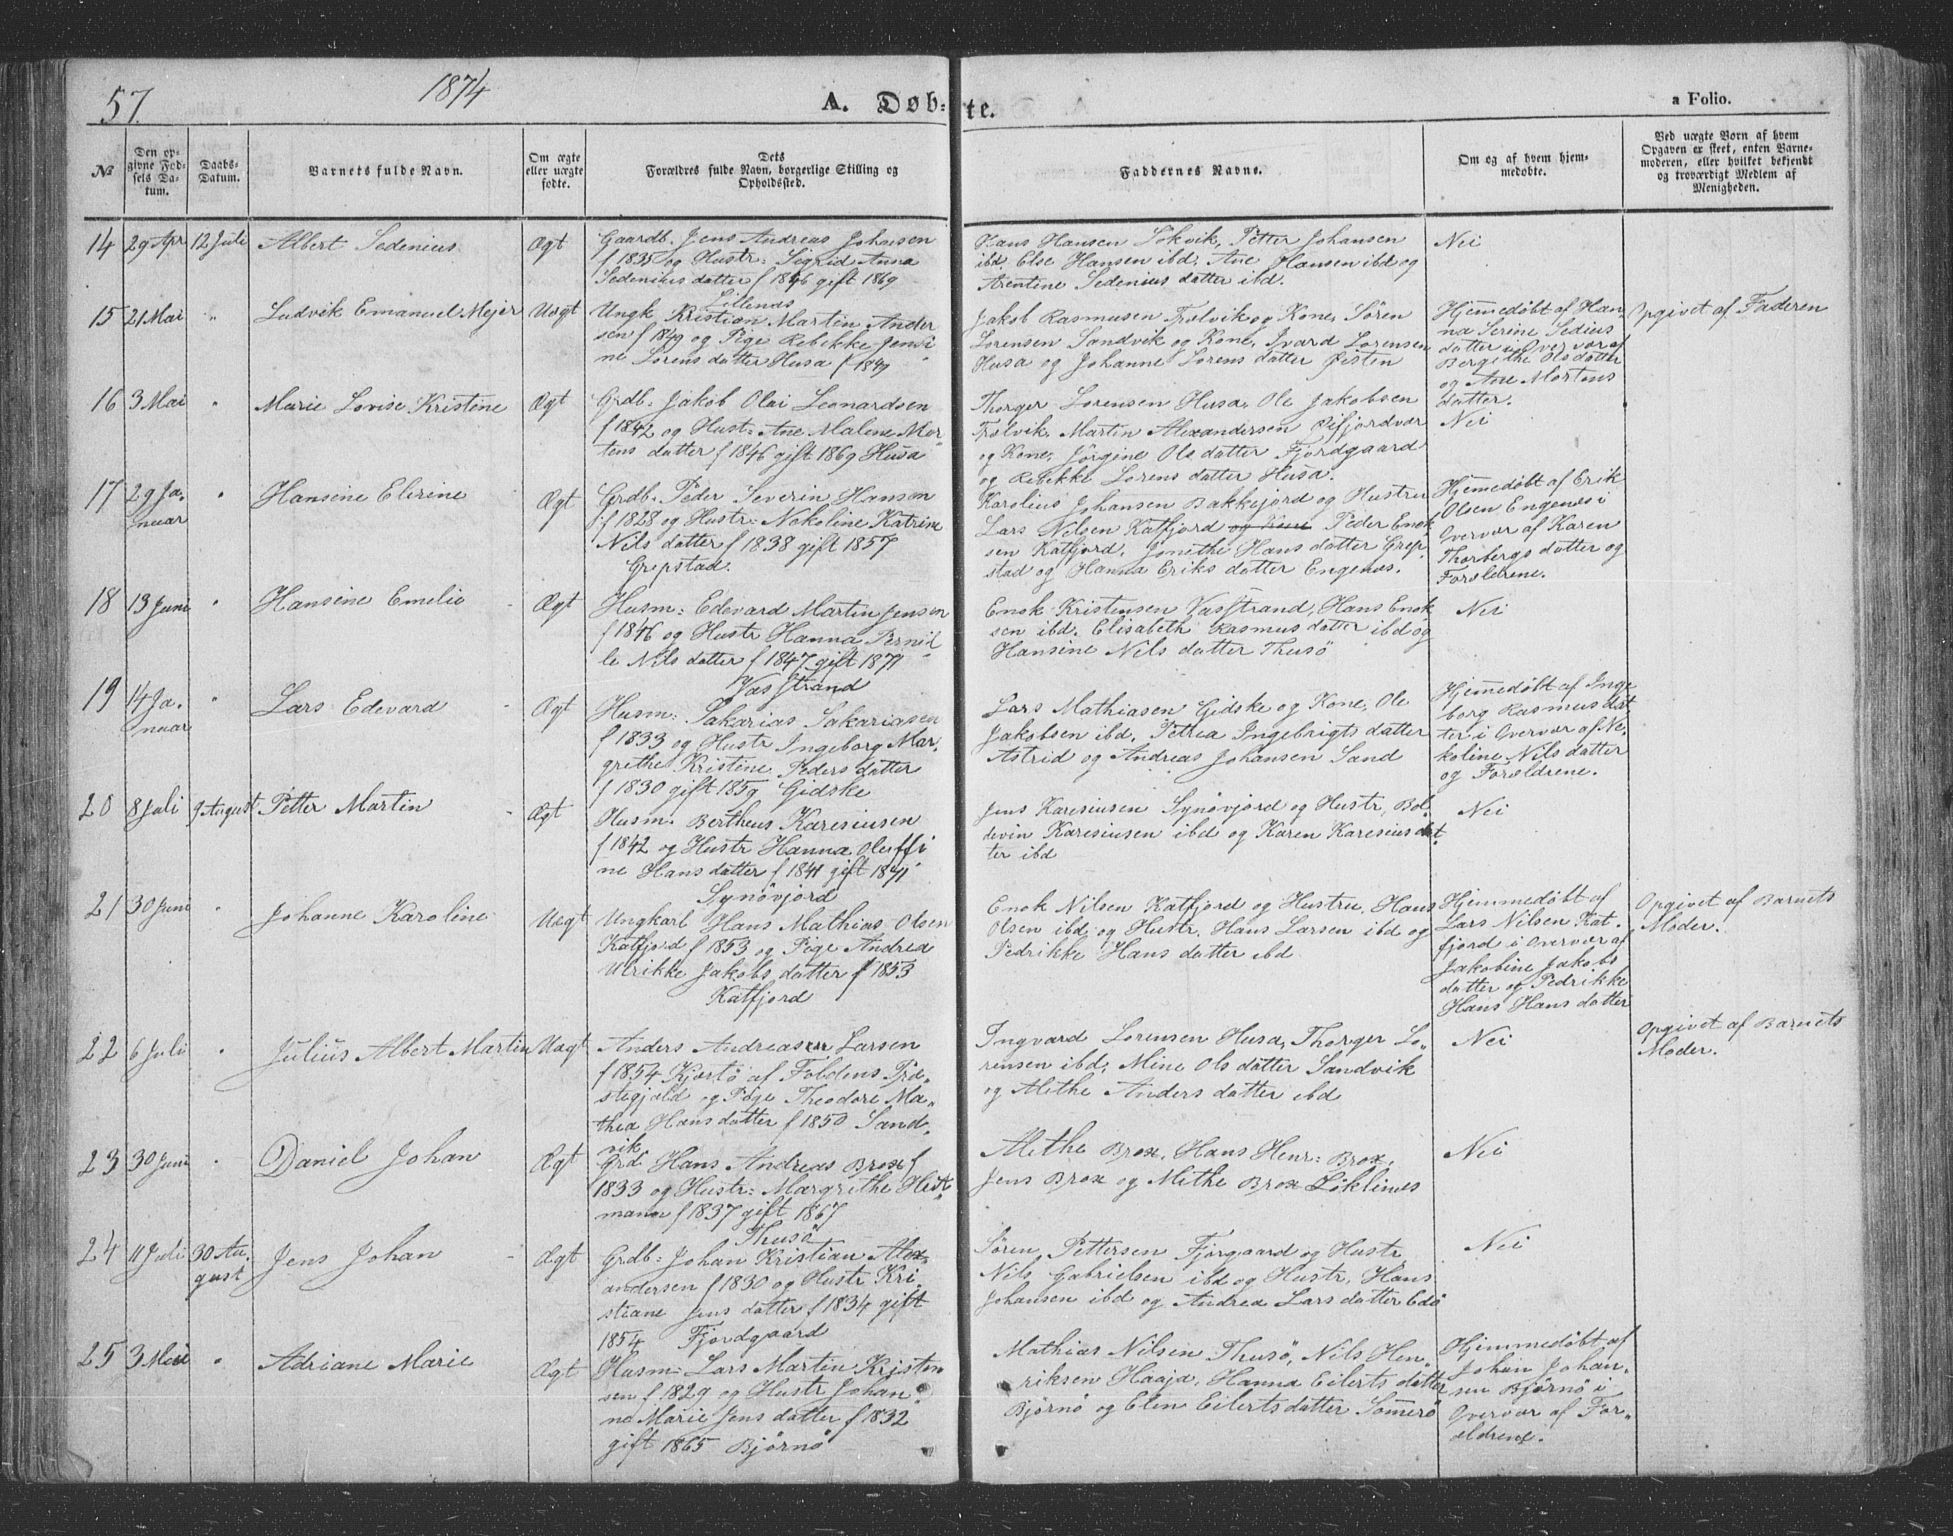 57.
1874
A. Døb-
te.
a Folio.
№
Den op-
givne Fød-
sels Da-
tum.
Daabs-
Datum.
Barnets fulde Navn.
Om ægte
eller uægte
fødte.
Dets
Forældres fulde Navn, borgerlige Stilling og
Opholdssted.
Faddernes Navne.
Om og af hvem hjem-
medøbte.
Ved uægte Børn af hvem
Opgaven er skeet, enten Barne-
moderen, eller hvilket bekjendt
og troværdigt Medlem af
Menigheden.
14
29 Apr
12 Juli
Albert Sedenius
Ægt
Gaardb. Jens Andreas Johnsen
f 1835 og Hustr: Sigrid Anna
Sedenius datter f 1846 gift 1869
Lillenæs
Hans Hansen Sokvik, Petter Johansen
ibd, Else Hansen ibd, Ane Hansen ibd og
Arentine Sedenius datter ibd.
Nei
15
21 Mai
"
Ludvik Emanuel Mejer
Uægt
Ungk Kristian Martin Ander
sen f 1849 og Pige Rebekke Jensi
ne Lorens datter Husa f 1849
Jakob Rasmusen Trolvik og Kone, Sören
Lorensen Sandvik og Kone, Ivard Lorensen
Husa og Johanne Lorens datter Øisten
Hjemedöbt af Han
na Serine Sedius
datter i Overvær af
Bergithe Olsdatter
og Ane Mortens
datter.
Opgivet af Faderen
16
3 Mai
"
Marie Lovise Kristine
Ægt
Grdb. Jakob Olai Leonardsen
f 1842 og Hust: Ane Malene Mor
tens datter f 1846 gift 1869 Husa
Thorger Lorensen Husa, Ole Jakobsen
Trolvik, Martin Alexandersen Oifjordvær
og Kone, Jörgine Ols datter Fjordgaard
og Rebekke Lorens datter Husa.
Nei
17
29 Ja.
nuar
"
Hansine Elerine
Ægt
Grdb. Peder Severin Hanson
f 1828 og Hustr: Nokoline Katrine
Nils datter f 1838 gift 1857
Grepstad.
Karolius Johansen Bakkejord og Hustru
Lars Nilsen Katfjord og Kone Peder Enok
sen Katfjord, Jonethe Hans datter Grep
stad og Hanna Eriks datter Engenes.
Hjemedöbt af Erik
Olsen Engenes i
Overvær af Karen
Thorbergs datter og
Forældrene.
18
13 Juni
"
Hansine Emelie
Ægt
Husm: Edevard Martin Jensen
f 1846 og Hustr Hanna Pernil
le Nils datter f 1847 gift 1871
Vasstrand
Enok Kristensen Vasstrand, Hans Enok
sen ibd. Elisabeth Rasmus datter ibd og
Hansine Nils datter Thusö
Nei
19
14 Ja.
nuar
"
Lars Edevard
Ægt
Husm: Sakarias Sakariasen
f 1833 og Hustr Ingeborg Mar,
grethe Kristine Peders datter
f 1830 gift 1859 Gidske
Lars Mathiasen Gidske og Kone, Ole
Jakobsen ibd, Petrea Ingebrigts datter
Astrid og Andreas Johansen Sand
Hjemedöbt af Inge
borg Rasmus dat
ter i Overvær af Ne,
koline Nils datter
og Forældrene.
20
8 Juli
9 August
Petter Martin
Ægt
Husm. Bertheus Karesiusen
f 1842 og Hustr Hanna Oluffi
ne Hans datter f 1841 gift 1871
Synövjord
Jens Karesiusen Synövjord og Hustr, Bol
devin Karesiusen ibd og Karen Karesius dat
ter ibd
Nei
21
30 Juni
"
Johanne Karoline
Uægt
Ungkarl Hans Mathias Olsen
Katfjord f 1853 og Pige Andrea
Ulrikke Jakobs datter f 1853
Katfjord
Enok Nilsen Katfjord og Hustru, Hans
Olsen ibd og Hustr, Hans Larsen ibd og
Pedrikke Hans datter ibd
Hjemmedöbt af
Lars Nilsen Kat.
fjord i Overvær af
Jakobine Jakobs
datter og Pedrikke
Hans Hans datter
Opgivet af Barnets
Moder.
22
6 Juli
"
Julius Albert Martin
Uægt
Anders Andreasen Larsen
f 1854 Kjertö af Foldens Præ.
stegjæld og Pige Theodore Ma,
thea Hans datter f 1850 Sand,
vik
Ingvard Lorensen Husa, Thorger Lo,
rensen ibd, Mine Ols datter Sandvik
og Alethe Anders datter ibd
Nei
Opgivet af Barnets
Moder.
23
30 Juni
"
Daniel Johan
Ægt
Grd Hans Andreas Brox f
1833 og Hustr: Margrethe Heit
mann f 1837 gift 1867
Thusö
Alethe Brox, Hans Henr: Brox,
Jens Brox og Methe Brox Löklines
Nei
24
11 Juli
30 Au.
gust
Jens Johan
Ægt
Grdb: Johan Kristian Alex
andersen f 1830 og Hustr Kri,
stiane Jens datter f 1834 gift
1854 Fjordgaard
Sören Pettersen Fjörgaard og Hustr
Nils Gabrielsen ibd og Hustr, Hans
Johansen ibd og Andrea Lars datter Edö
Nei
25
3 Mai
"
Adriane Marie
Ægt
Husm: Lars Martin Kristen
sen f 1829 og Hustr Johan
na Marie Jens datter f 1832
gift 1865 Bjørnö
Mathias Nilsen Thusö, Nils Hen,
riksen Haaja, Hanna Eilerts datter
Bjørnö og Elen Eilerts datter Somerö
Hjemmedöbt af
Johan Johan,
sen Bjørnö i
Overvær af For,
ældrene.